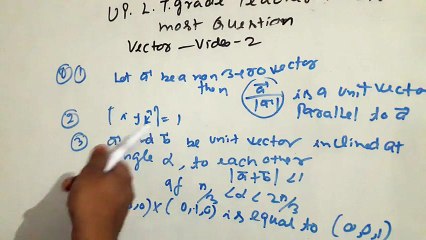 UP. L.T. grade Teacher
most Question
Vector — Video-2
① Let a⃗ be a non zero vector
then a⃗/|a⃗| is a unit vector
Parallel to a⃗
② k̂] = 1
③ b⃗ be unit vector inclined at
angle α, to each other
|a⃗+b⃗| < 1
π/3 < α < 2π/3
,0) × (0,1,0) is equal to (0,0,1)